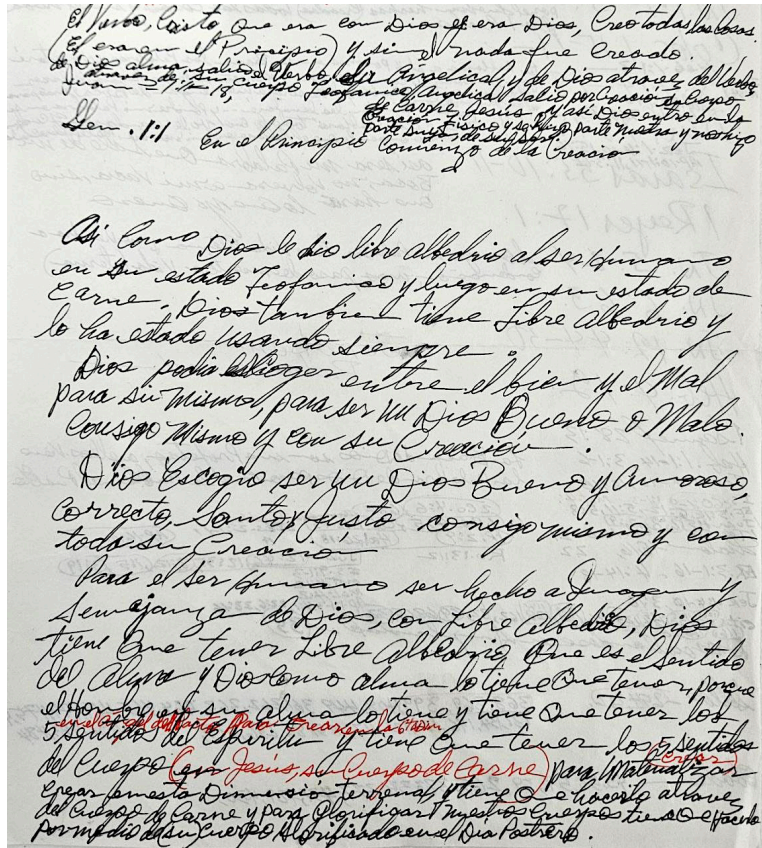 El Verbo, Cristo que era con Dios y era Dios, Creo todas las Cosas.
(El era en el Principio) y sin el nada fue Creado.
de Dios alma, salio el Verbo, Angelical y de Dios atraves del Verbo
Juan 1:1-18, Cuerpo Teofanico Angelical salio por Creacion
de Carne Jesus, y asi Dios entro en la
Creacion parte
Gen. 1:1
En el Principio Comienzo de la Creacion
Asi Como Dios le dio libre albedrio al ser Humano
en su estado Teofanico y luego en su estado de
Carne, Dios tambien tiene Libre Albedrio y
lo ha estado usando siempre.
Dios podia escoger entre el bien y el Mal
para si Mismo, para ser un Dios Bueno o Malo
Consigo Mismo y con su Creacion.
Dios Escogio ser un Dios Bueno y Amoroso,
Correcto, Santo y Justo consigo mismo y con
toda su Creacion
Para el ser Humano ser hecho a Imagen y
Semejanza de Dios, con Libre Albedrio, Dios
tiene Que tener Libre Albedrio Que es el sentido
del Alma y Dios como alma lo tiene Que tener, porque
el Hombre en su alma lo tiene y tiene Que tener los
en el Angel del Pacto Para Crear en la 6ta Dim
5 sentidos del Espiritu y tiene Que tener los 5 sentidos
del Cuerpo (en Jesús, su Cuerpo de Carne) para Materializar (Crear)
Crear en esta Dimension terrenal y tiene Que hacerlo atraves
del Cuerpo de Carne y para Glorificar Nuestros Cuerpos tiene Que Hacerlo
por medio de (su) Cuerpo Glorificado en el Dia Postrero.